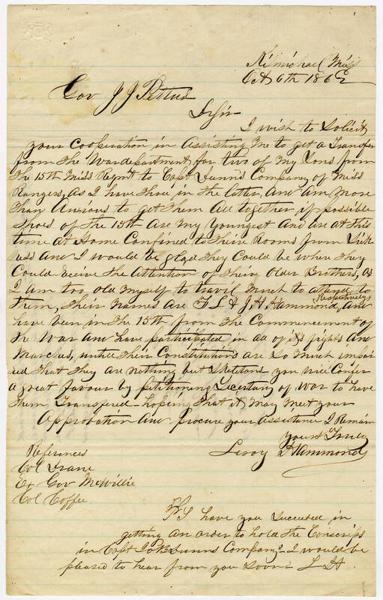 Kilmichael Miss
Oct 6th 1862
Gov J J Pettus
Dr Sir
I wish to Solicit
your Cooperation in Assisting me to get a Transfer
from the War department for two of my Sons from
the 15th Miss Regmt to Capt Dunns Company of Miss
Rangers, as I have three in the latter, and am more
than Anxious to get them All together if possible
those of the 15th are my Youngest And are at this
time at Home Confined to their Rooms from Sick
ness and I would be glad they Could be where they
Could receive the Attention of their Older Brothers, as
I am too Old myself to travil much to attend to
them, their Names are F L & J H Hammond, Respectively and
have been in the 15th from the Commencement of
the War and have participated in all of its fights and
Marches, untill their Constitutions are So much impai
red that they are nothing but Skeletons you will Confer
a great favour by petitioning Secretary of War to have
them Transfered - hoping that it may meet your
Approbation and procure your Assistance I Remain
Yours Truly
Leroy Hammond
References
Col
Ex Gov McWillie
Col Coffee
PS have you Succeeded in
getting an order to hold the Conscrips
in Capt Dunns Company. I would be
pleased to hear from you Soon - L H